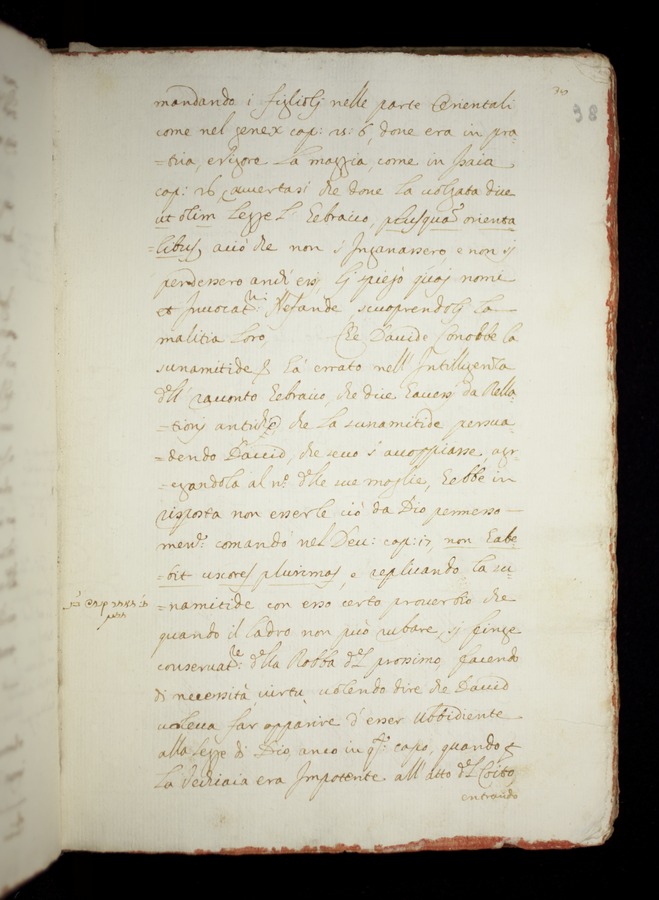 30
38
mandando i figliolj nelle parte Orientali
come nel genex cap: 25: 6, done era in pra
=tica, e vigore La maggia, come in Isaia
cap: 26, avvertasi che done La volgata dice
ut olim Legge L' Eebraico, plusqua͂ orienta
=libus, aciò che non s' Ingannassero, e non si
perdessero anch' essi, Gli spiegò quei nomi
et Invocat.ni Nefande, scuoprendoli La
malitia Loro, Che Davide Conobbe la
sunamitide & hà errato nell' Intilligenza
dell' raconto Eebraico, che dice Eaversi da Rella
=tionj antiche che La sunamitide persua
=dendo David, che seco s' accoppiasse, agr
=egandola al n.o delle sue moglie, Eebbe in
risposta non esserle ciò da Dio permesso
mentre comandò nel Deu: cap: 17, non Eabe
=bit uxores plurimas, e replicando la su
=namitide con esso certo proverbio che
quando il ladro non può rubare, si finge
conservat.re della Robba del prossimo, facendo
di necessità virtù, volendo dire che David
voleva far apparire d'esser Ubbidiente
alla Legge di Dio, anco in q.to capo, quando &
La Vechiaia era Impotente all' atto del Coito,
entrando